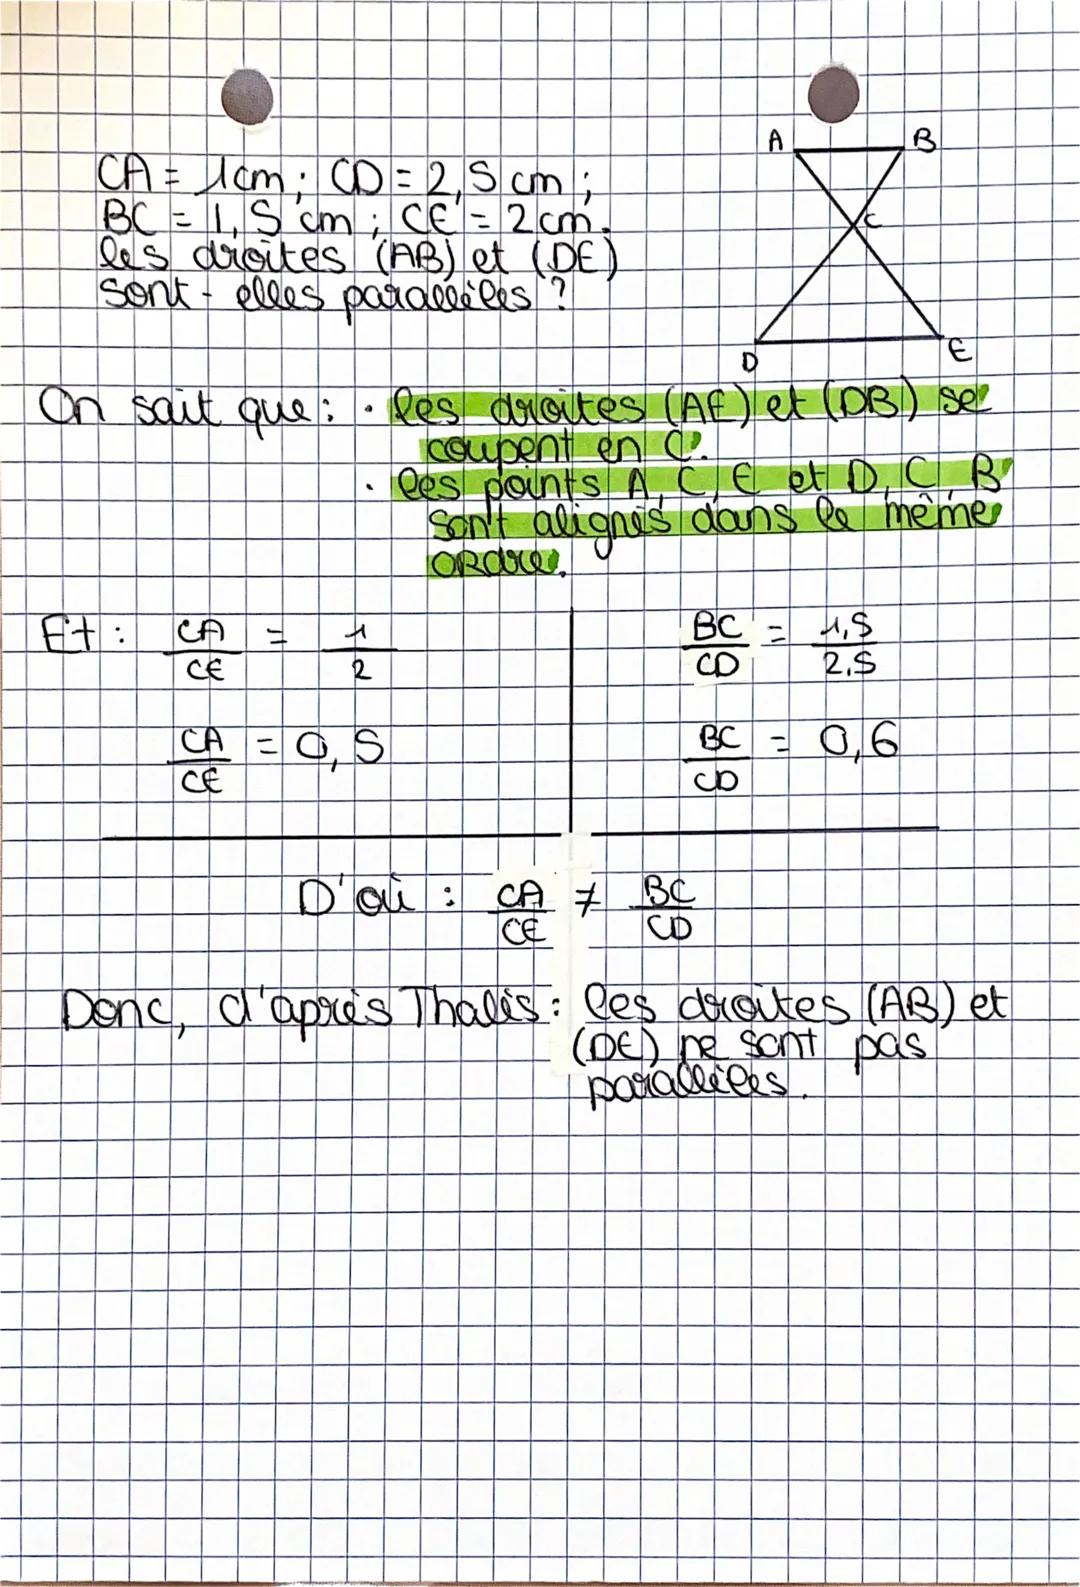 A B
CA = 1cm ; CD = 2,5 cm ;
BC = 1,5 cm ; CE = 2 cm.
C
les droites (AB) et (DE)
sont-elles parallèles ?
D E
On sait que : • les droites (AE) et (DB) se
coupent en C.
• les points A, C, E et D, C, B
sont alignés dans le même
ordre.
Et : CA/CE = 1/2
BC/CD = 1,5/2,5
CA/CE = 0,5
BC/CD = 0,6
D'où : CA/CE ≠ BC/CD
Donc, d'après Thalès : les droites (AB) et
(DE) ne sont pas
parallèles.